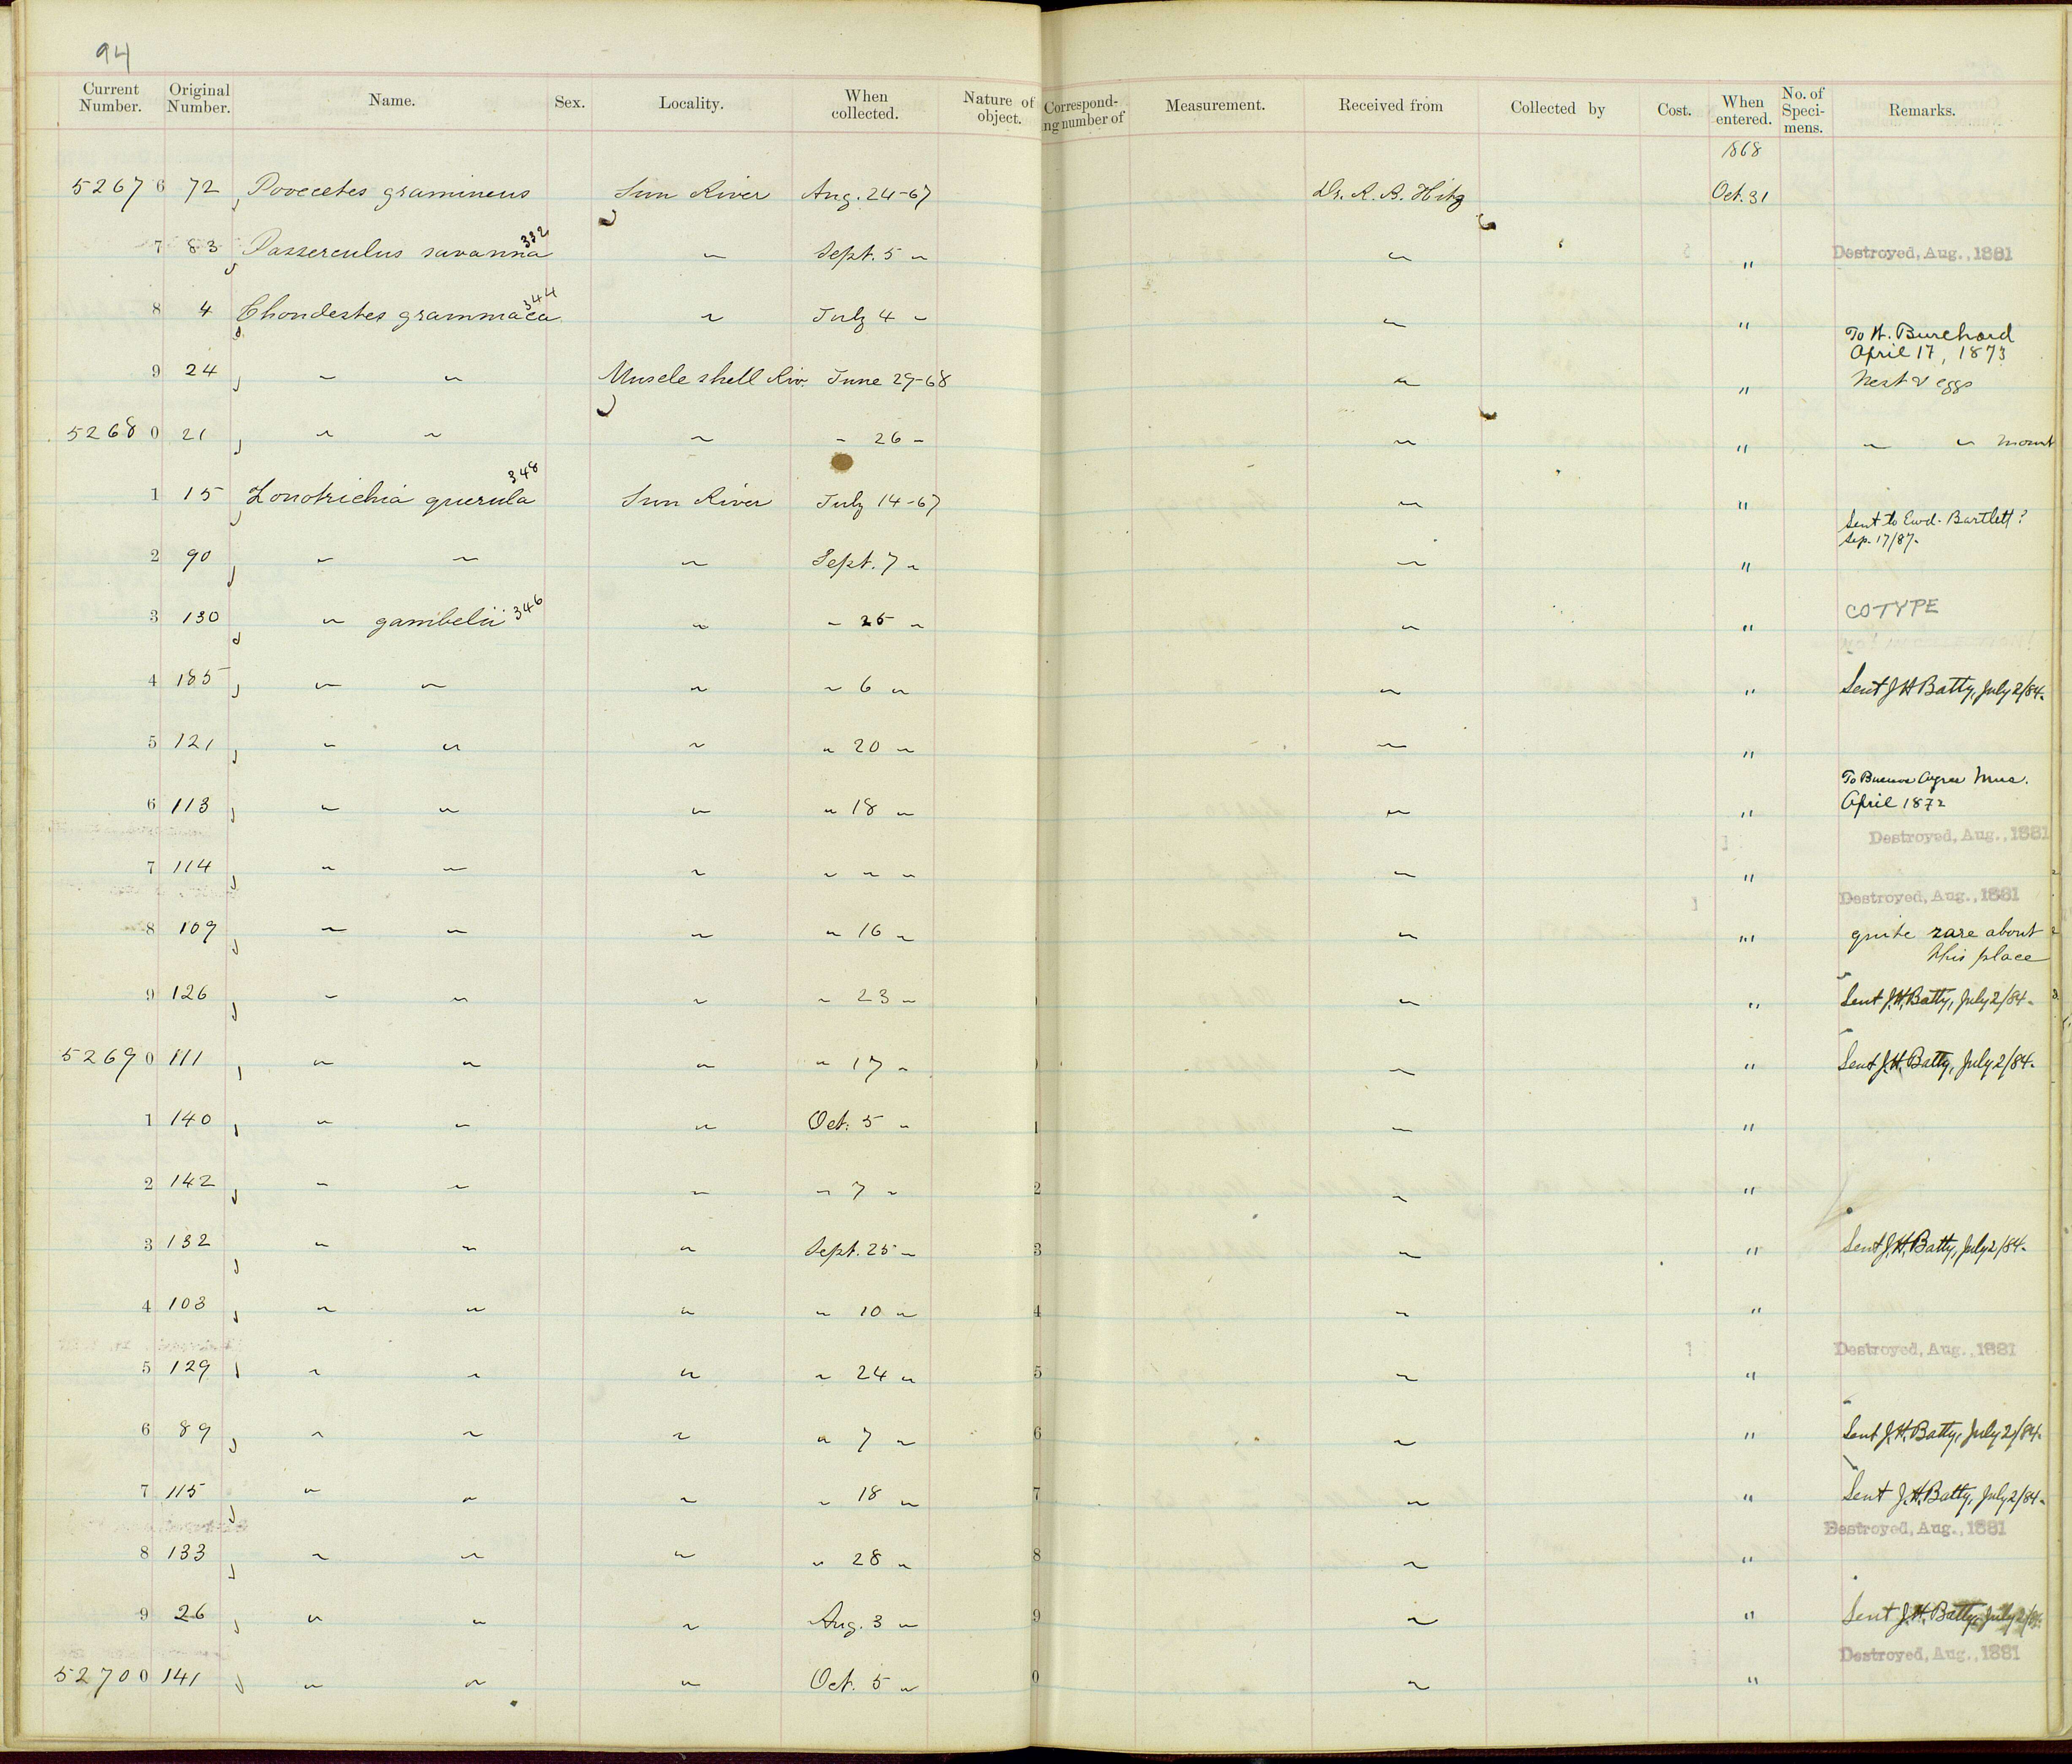 94
Current Number. Original Number. Name. Sex. Locality. When collected. Nature of object. Correspond- ng number of Measurement. Received from Collected by Cost. When entered. No. of Speci- mens. Remarks.
1868
52676 72 Povecetes gramineus Sun River Aug. 24-67 Dr. R. B. Hitz Oct. 31
7 83 Passerculus savanna 332 " Sept. 5 " " " Destroyed, Aug., 1881
8 4 Chondestes grammaca 344 " July 4 " " " To H. Burchard
April 17, 1873
9 24 " " Muscle shell Riv. June 29-68 " " Nest & eggs
52680 21 " " " " 26 " " " " " mount
1 15 Zonotrichia querula 348 Sun River July 14-67 " " Sent to Ewd. Bartlett?
Sep. 17/87.
2 90 " " " Sept. 7 " " "
3 130 " gambelii 346 " " 25 " " " COTYPE
4 185 " " " " 6 " " " Sent J H Batty, July 2/84.
5 121 " " " " 20 " " "
6 113 " " " " 18 " " " To Buenos Ayres Mus.
April 1872
7 114 " " " " " " " " Destroyed, Aug., 1881
8 109 " " " " 16 " " " Destroyed, Aug., 1881
quite rare about
this place
9 126 " " " " 23 " " " Sent J.H. Batty, July 2/84.
52690 111 " " " " 17 " " " Sent J.H. Batty, July 2/84.
1 140 " " " Oct. 5 " 1 " "
2 142 " " " " 7 " 2 " "
3 132 " " " Sept. 25 " 3 " " Sent J.H. Batty, July 2/84.
4 103 " " " " 10 " 4 " "
5 129 " " " " 24 " 5 " " Destroyed, Aug., 1881
6 89 " " " " 7 " 6 " " Sent J.H. Batty, July 2/84.
7 115 " " " " 18 " 7 " " Sent J.H. Batty, July 2/84.
8 133 " " " " 28 " 8 " " Destroyed, Aug., 1881
9 26 " " " Aug. 3 " 9 " " Sent J.H. Batty, July 2/84.
52700 141 " " " Oct. 5 " 0 " " Destroyed, Aug., 1881